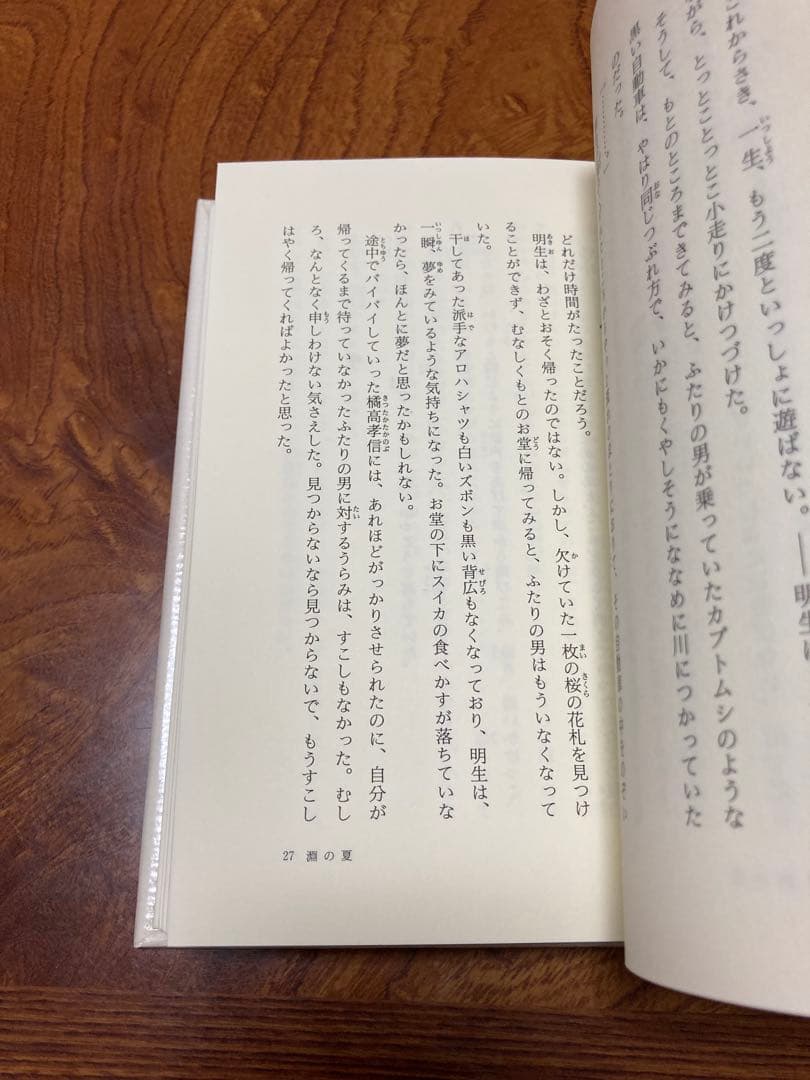 これからさき、一生、もう二度といっしょに遊ばない。――明生は
がら、とっとことっとこ小走りにかけつづけた。
そうして、もとのところまできてみると、ふたりの男が乗っていたカブトムシのような
黒い自動車は、やはり同じつぶれ方で、いかにもくやしそうにななめに川につかっていた
のだった。
どれだけ時間がたったことだろう。
明生は、わざとおそく帰ったのではない。しかし、欠けていた一枚の桜の花札を見つけ
ることができず、むなしくもとのお堂に帰ってみると、ふたりの男はもういなくなって
いた。
干してあった派手なアロハシャツも白いズボンも黒い背広もなくなっており、明生は、
一瞬、夢をみているような気持ちになった。お堂の下にスイカの食べかすが落ちていな
かったら、ほんとに夢だと思ったかもしれない。
途中でバイバイしていった橘高孝信には、あれほどがっかりさせられたのに、自分が
帰ってくるまで待っていなかったふたりの男に対するうらみは、すこしもなかった。むし
ろ、なんとなく申しわけない気さえした。見つからないなら見つからないで、もうすこし
はやく帰ってくればよかったと思った。
27 淵の夏